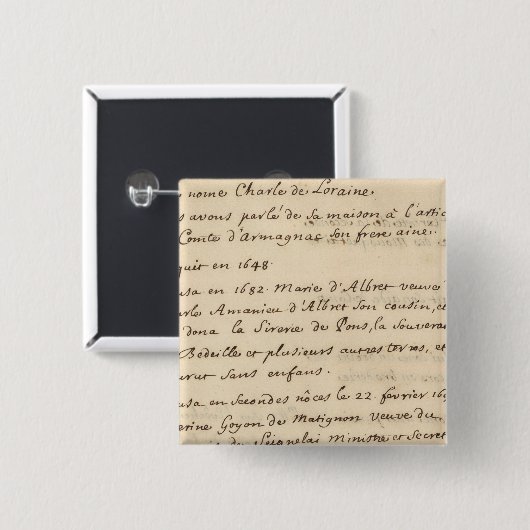 nome Charle de Loraine.
s avons parlé de sa maison à l'artic
Comte d'Armagnac son frere ainé.
quit en 1648.
usa en 1682. Marie d'Albret veuve
arle Amanieu d'Albret son cousin, et
dona la Sirerie de Pons, la souvera
Bedeille et plusieurs autres terres, et
urut sans enfans.
usa en secondes nôces le 22. février 16
erine Goyon de Matignon veuve du
Seignelai Ministre et Secret